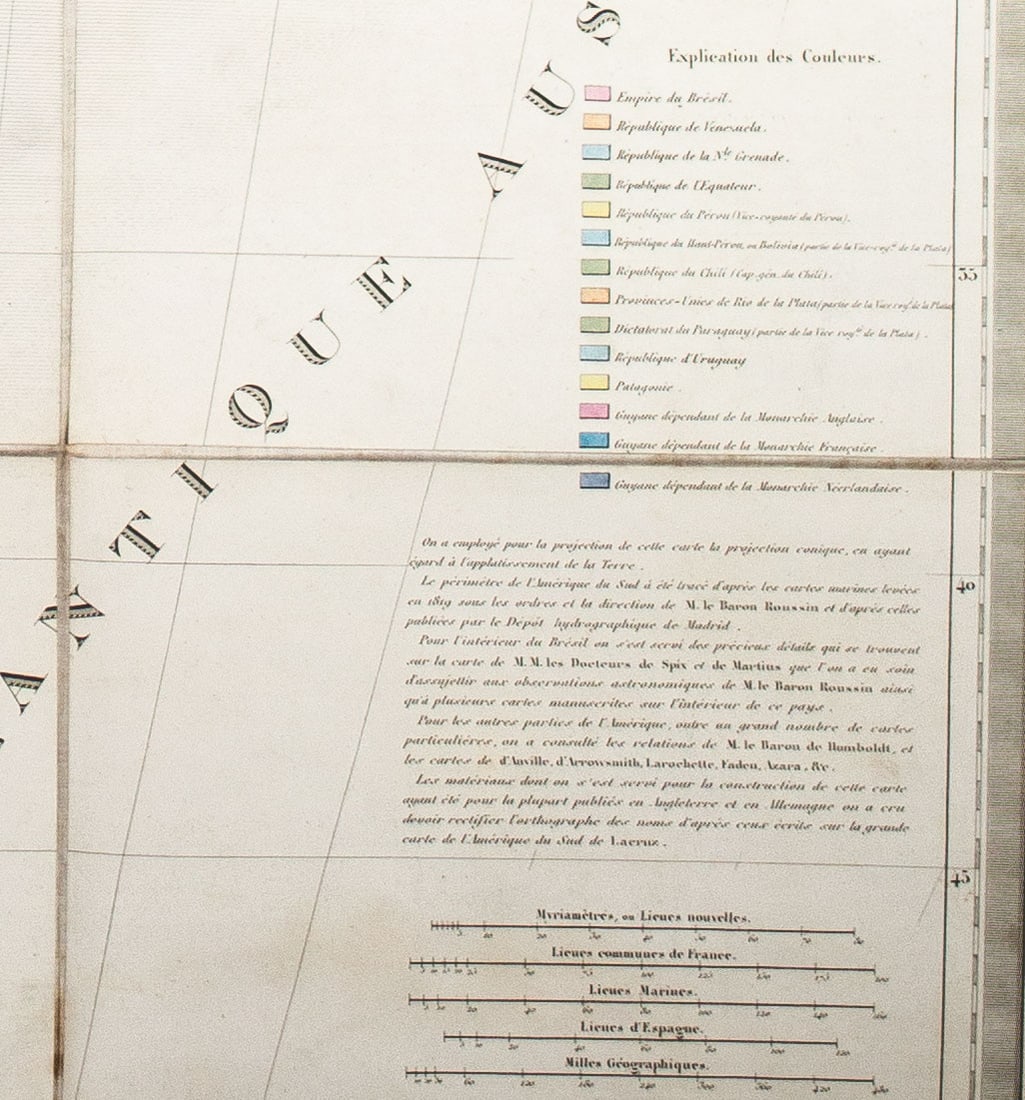 ANTIQUE AUS
Explication des Couleurs.
Empire du Brésil.
République de Venezuela.
République de la Nlle Grenade.
République de l'Equateur.
République du Pérou (Vice-royauté du Pérou).
République du Haut-Pérou, ou Bolivia (partie de la Vice-roy.té de la Plata)
République du Chili (Cap. gén. du Chili).
Provinces-Unies de Rio de la Plata (partie de la Vice roy.té de la Plata
Dictatorat du Paraguay (partie de la Vice roy.té de la Plata).
République d'Uruguay
Patagonie.
Guyane dépendant de la Monarchie Anglaise.
Guyane dépendant de la Monarchie Française.
Guyane dépendant de la Monarchie Néerlandaise.
35
40
45
On a employé pour la projection de cette carte la projection conique, en ayant
égard à l'applatissement de la Terre.
Le périmètre de l'Amérique du Sud à été tracé d'après les cartes marines levées
en 1819 sous les ordres et la direction de M. le Baron Roussin et d'après celles
publiées par le Dépôt hydrographique de Madrid.
Pour l'intérieur du Brésil on s'est servi des précieux détails qui se trouvent
sur la carte de M.M. les Docteurs de Spix et de Martius que l'on a eu soin
d'assujettir aux observations astronomiques de M. le Baron Roussin ainsi
qu'à plusieurs cartes manuscrites sur l'intérieur de ce pays.
Pour les autres parties de l'Amérique, outre un grand nombre de cartes
particulières, on a consulté les relations de M. le Baron de Humboldt, et
les cartes de d'Anville, d'Arrowsmith, Larochette, Faden, Azara, &c.
Les matériaux dont on s'est servi pour la construction de cette carte
ayant été pour la plupart publiés en Angleterre et en Allemagne on a cru
devoir rectifier l'orthographe des noms d'après ceux écrits sur la grande
carte de l'Amérique du Sud de Lacruz.
Myriamètres, ou Lieues nouvelles.
5 10 20 30 40 50 60 70 80
Lieues communes de France.
5 10 15 20 25 50 75 100 125 150 175 200
Lieues Marines.
5 10 20 40 60 80 100 120 140 160
Lieues d'Espagne.
5 10 20 40 60 80 100 120
Milles Géographiques.
10 20 30 60 120 180 240 300 360 420 480